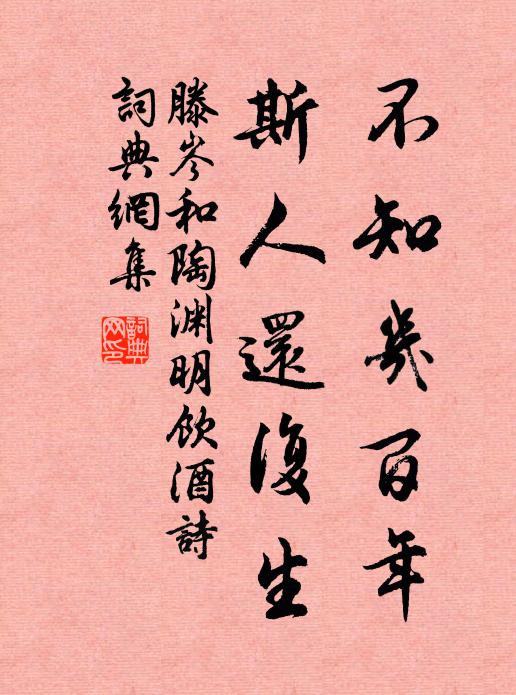 不知幾百年
斯人還復生
滕岑和陶渊明飲酒詩
詞典網集
詞典
网印